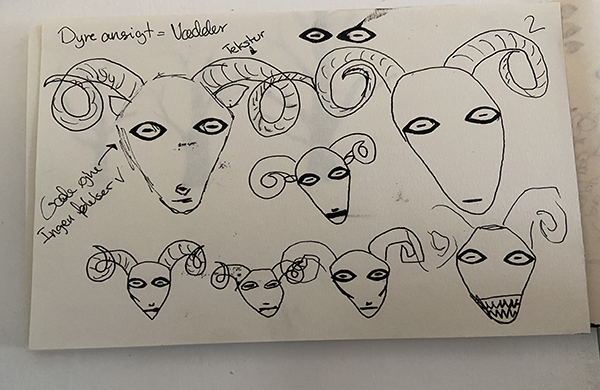 Dyre ansigt = Vædder
Tekstur
2
Gode øjne
Ingen pubiller ✓